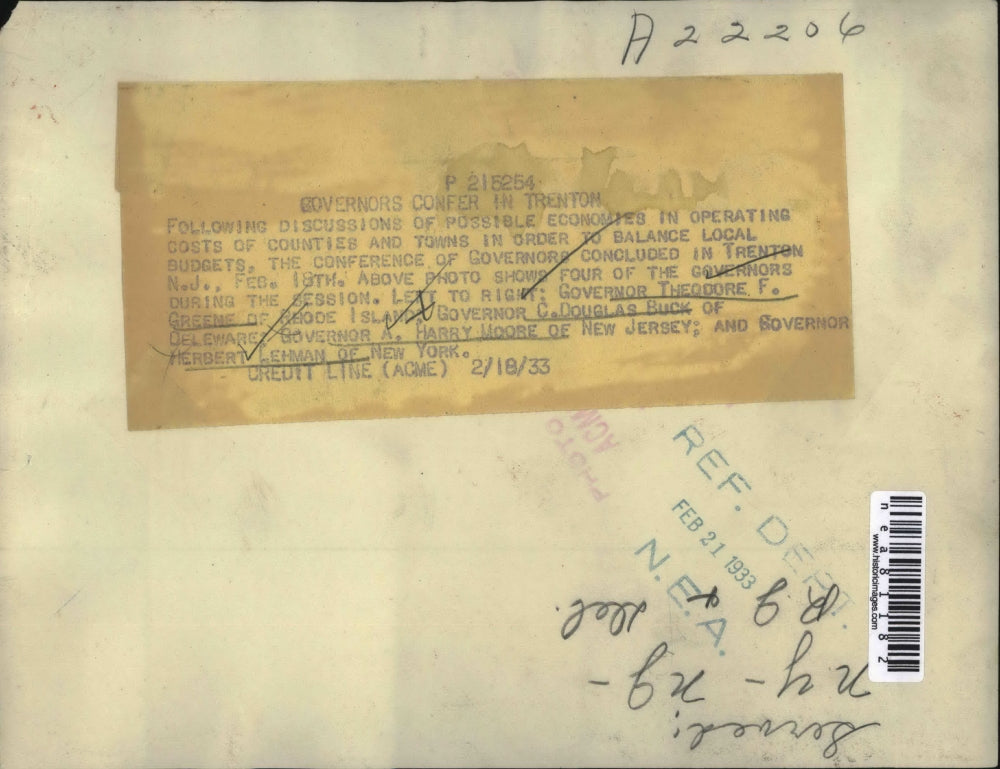 A 22206
P 215254
GOVERNORS CONFER IN TRENTON
FOLLOWING DISCUSSIONS OF POSSIBLE ECONOMIES IN OPERATING
COSTS OF COUNTIES AND TOWNS IN ORDER TO BALANCE LOCAL
BUDGETS, THE CONFERENCE OF GOVERNORS CONCLUDED IN TRENTON
N.J., FEB. 18TH. ABOVE PHOTO SHOWS FOUR OF THE GOVERNORS
DURING THE SESSION. LEFT TO RIGHT: GOVERNOR THEODORE F.
GREENE OF RHODE ISLAND; GOVERNOR C.DOUGLAS BUCK OF
DELEWARE; GOVERNOR A. HARRY MOORE OF NEW JERSEY; AND GOVERNOR
HERBERT LEHMAN OF NEW YORK.
CREDIT LINE (ACME) 2/18/33
PHOTO
ACM
REF. DEPT.
FEB 21 1933
N.E.A.
nea81182
www.historicimages.com
Served:
ny - nj -
Del.